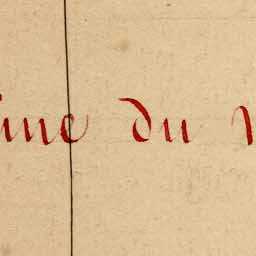 ine du